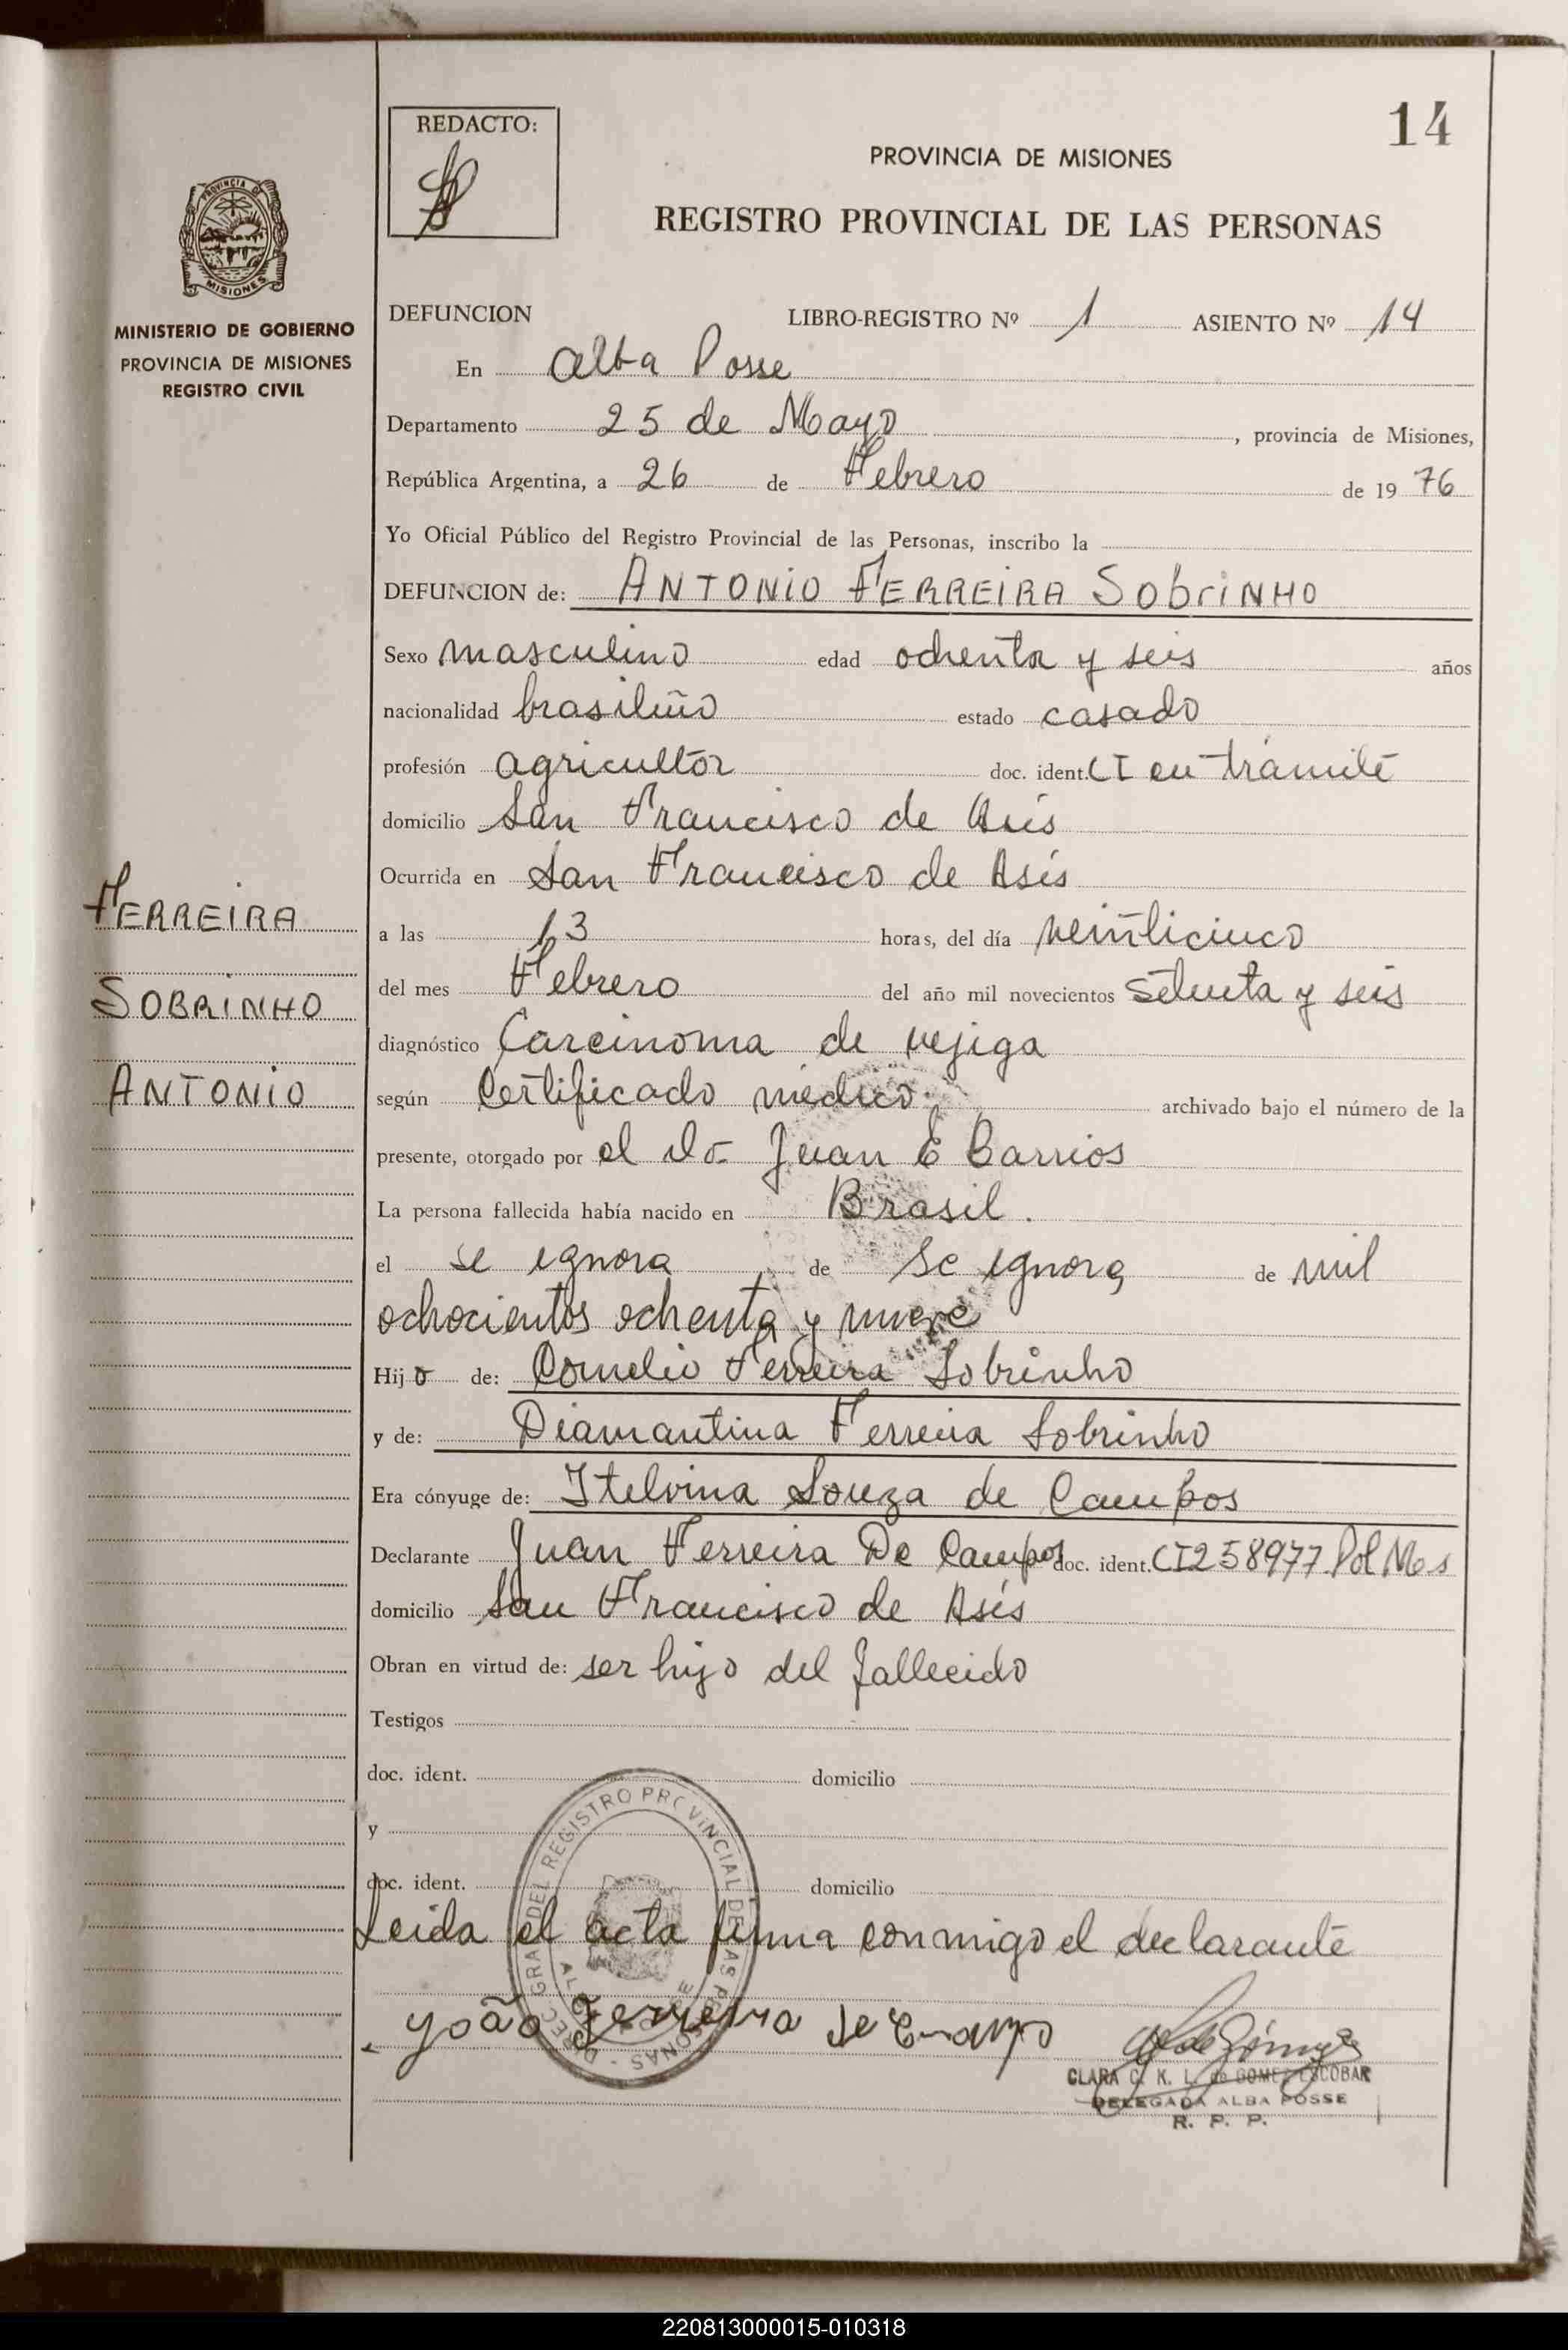 14
REDACTO:
PROVINCIA DE MISIONES
REGISTRO PROVINCIAL DE LAS PERSONAS
PROVINCIA DE
MISIONES
MINISTERIO DE GOBIERNO
PROVINCIA DE MISIONES
REGISTRO CIVIL
DEFUNCION LIBRO-REGISTRO Nº 1 ASIENTO Nº 14
En Alba Posse
Departamento 25 de Mayo, provincia de Misiones,
República Argentina, a 26 de Febrero de 1976
Yo Oficial Público del Registro Provincial de las Personas, inscribo la
DEFUNCION de: ANTONIO FERREIRA SObriNHO
Sexo masculino edad ochenta y seis años
nacionalidad brasileño estado casado
profesión agricultor doc. ident. CI en trámite
domicilio San Francisco de Asís
Ocurrida en San Francisco de Asís
FERREIRA
SOBRINHO
ANTONIO
a las 13 horas, del día veinticinco
del mes Febrero del año mil novecientos setenta y seis
diagnóstico Carcinoma de vejiga
según Certificado médico archivado bajo el número de la
presente, otorgado por el Dr Juan E Barrios
La persona fallecida había nacido en Brasil.
el se ignora de se ignora de mil
ochocientos ochenta y nueve
Hijo de: Cornelio Ferreira Sobrinho
y de: Diamantina Ferreira Sobrinho
Era cónyuge de: Itelvina Souza de Campos
Declarante Juan Ferreira De Campos doc. ident. CI 258977 Pol Mes
domicilio San Francisco de Asís
Obran en virtud de: ser hijo del fallecido
Testigos
doc. ident. domicilio
y
doc. ident. domicilio
Leída el acta firma conmigo el declarante
DIREC. GRAL DEL REGISTRO PROVINCIAL DE LAS PERSONAS
João Ferreira de
CLARA C. K. L. de GOMEZ ESCOBAR
DELEGADA ALBA POSSE
R. P. P.
220813000015-010318